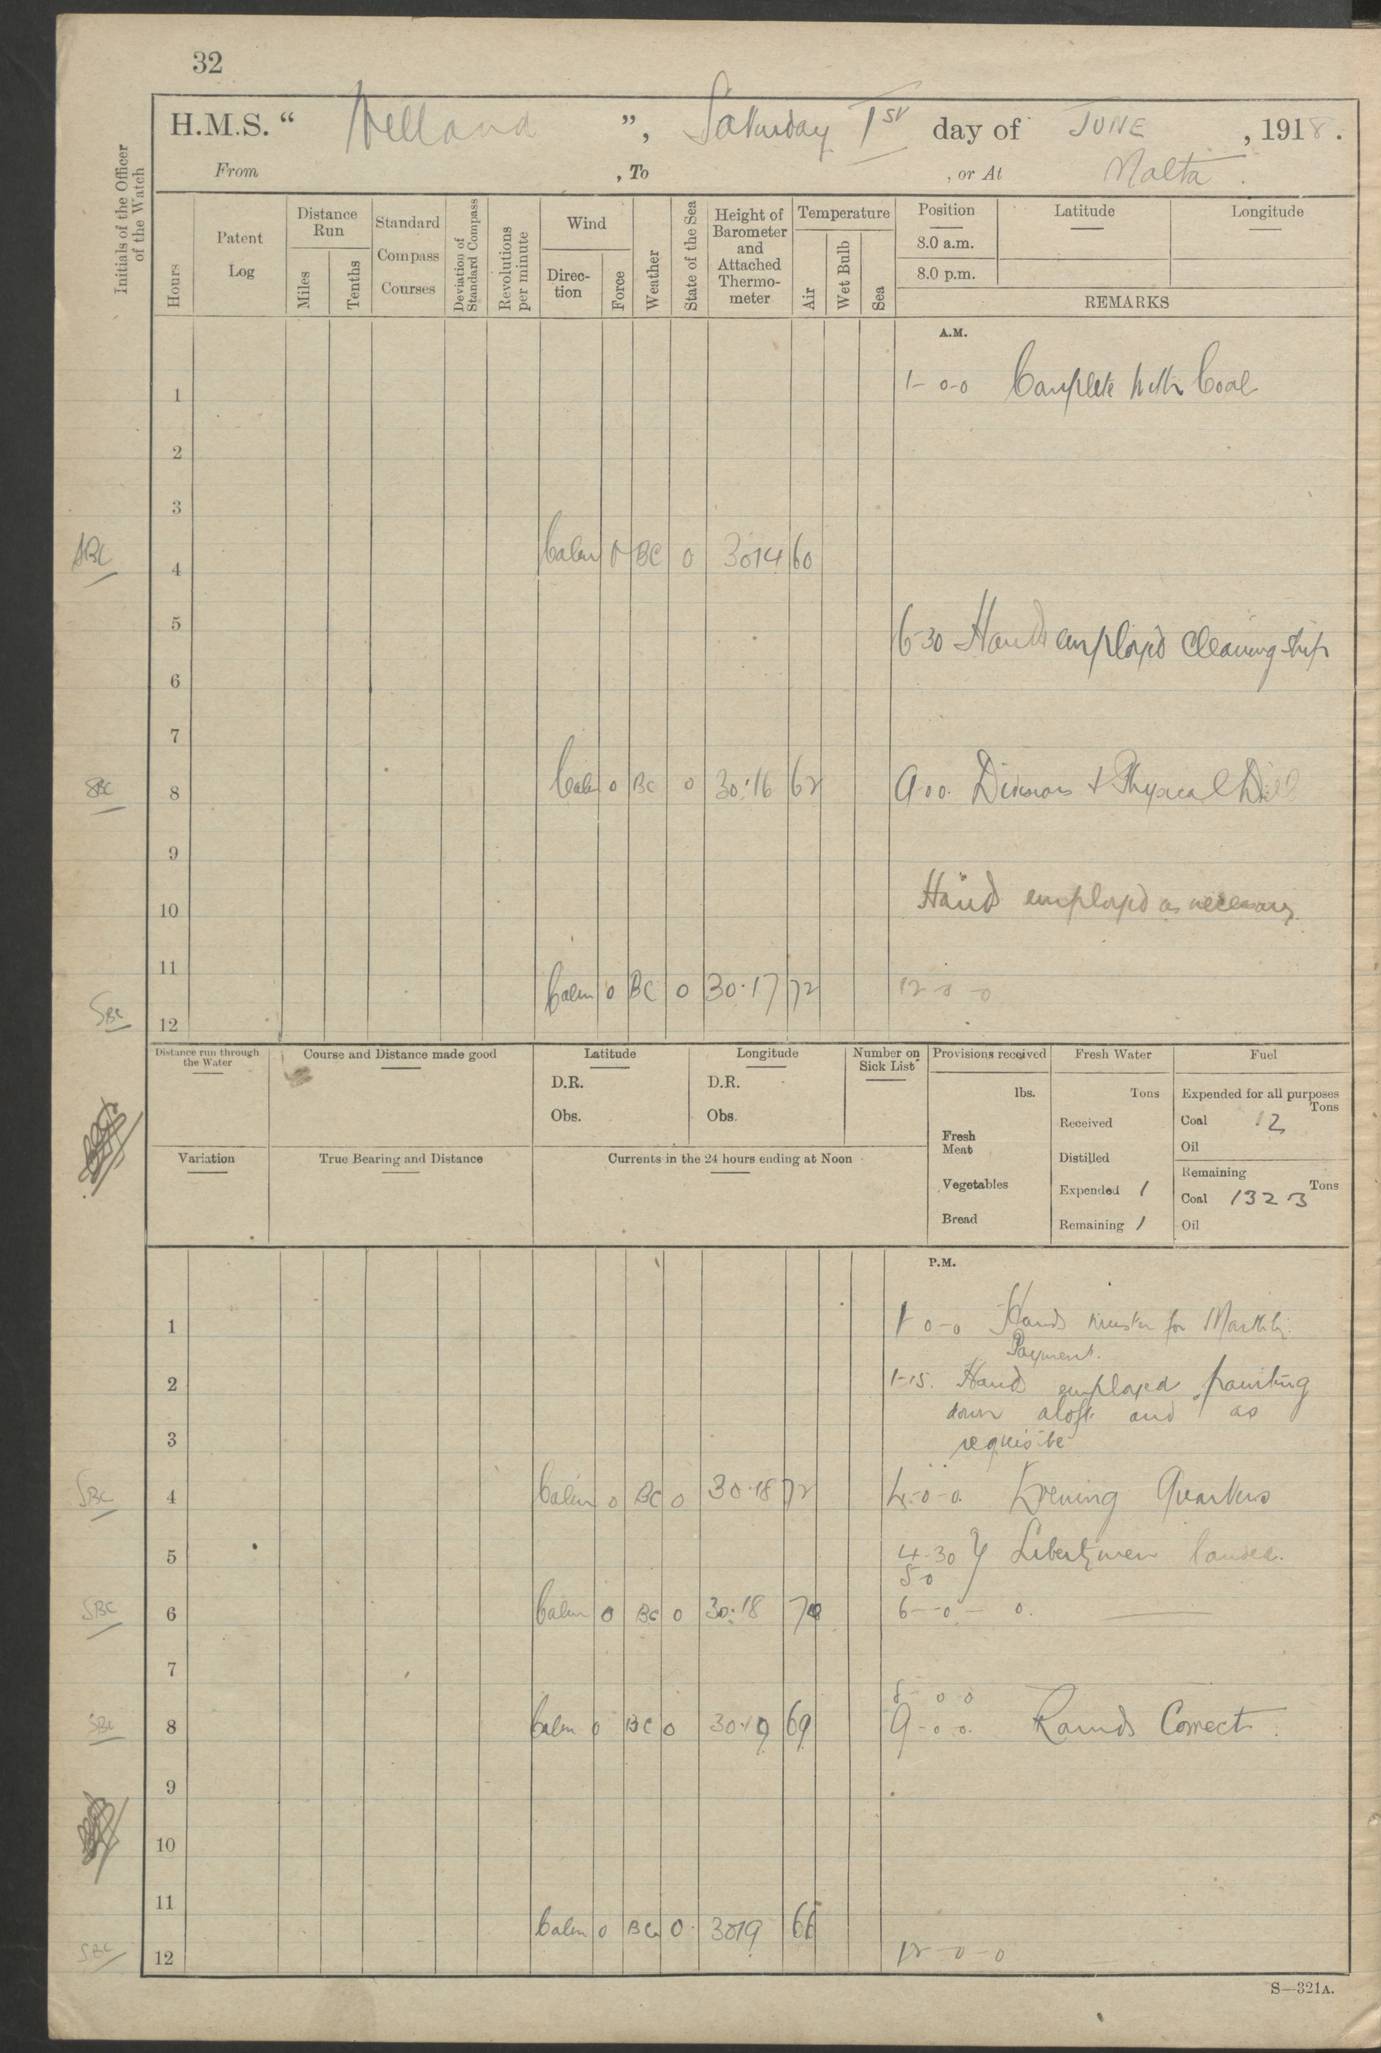 32
H.M.S. “ Welland ”, Saturday 1st day of JUNE , 1918.
From , To , or At Malta.
Initials of the Officer of the Watch
Hours
Patent Log
Distance Run
Miles
Tenths
Standard Compass Courses
Deviation of Standard Compass
Revolutions per minute
Wind
Direc-tion
Force
Weather
State of the Sea
Height of Barometer and Attached Thermo-meter
Temperature
Air
Wet Bulb
Sea
Position Latitude Longitude
8.0 a.m.
8.0 p.m.
REMARKS
A.M.
1 1-0-0 Complete with Coal
2
3
SBC 4 Calm 0 BC 0 3014 60
5 6-30 Hands employed cleaning ship
6
7
SBC 8 Calm 0 BC 0 30.16 62 9.00. Divisions & Physical Drill
9
10 Hands employed as necessary
11
SBC 12 Calm 0 BC 0 30.17 72 12-0-0
Distance run through the Water
Course and Distance made good
Latitude
D.R.
Obs.
Longitude
D.R.
Obs.
Number on Sick List
Provisions received
lbs.
Fresh Meat
Vegetables
Bread
Fresh Water
Tons
Received
Distilled
Expended 1
Remaining 1
Fuel
Expended for all purposes
Tons
Coal 12
Oil
Remaining
Tons
Coal 132
Oil
Variation
True Bearing and Distance
Currents in the 24 hours ending at Noon
P.M.
1 1-0-0 Hands muster for Monthly
Payment.
2 1-15. Hands employed painting
down aloft and as
3 requisite
SBC 4 Calm 0 BC 0 30.18 72 4-0-0. Evening Quarters
5 4.30 } Libertymen landed.
5 0
SBC 6 Calm 0 BC 0 30.18 70 6-0-0.
7
8-00
SBC 8 Calm 0 BC 0 30.19 69 9-00. Rounds Correct.
9
10
11
SBC 12 Calm 0 BC 0. 3019 66 12-0-0
S—321A.